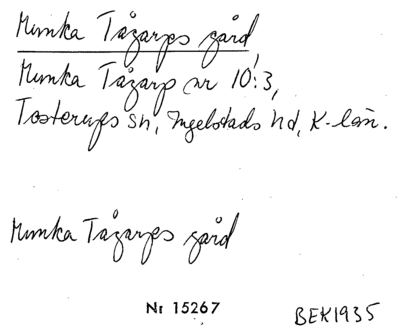 Munka Tågarps gård,
Munka Tågarp nr 10:3,
Tosterups sn, Ingelstads hd, K-län.
Munka Tågarps gård
Nr 15267
BEK1935